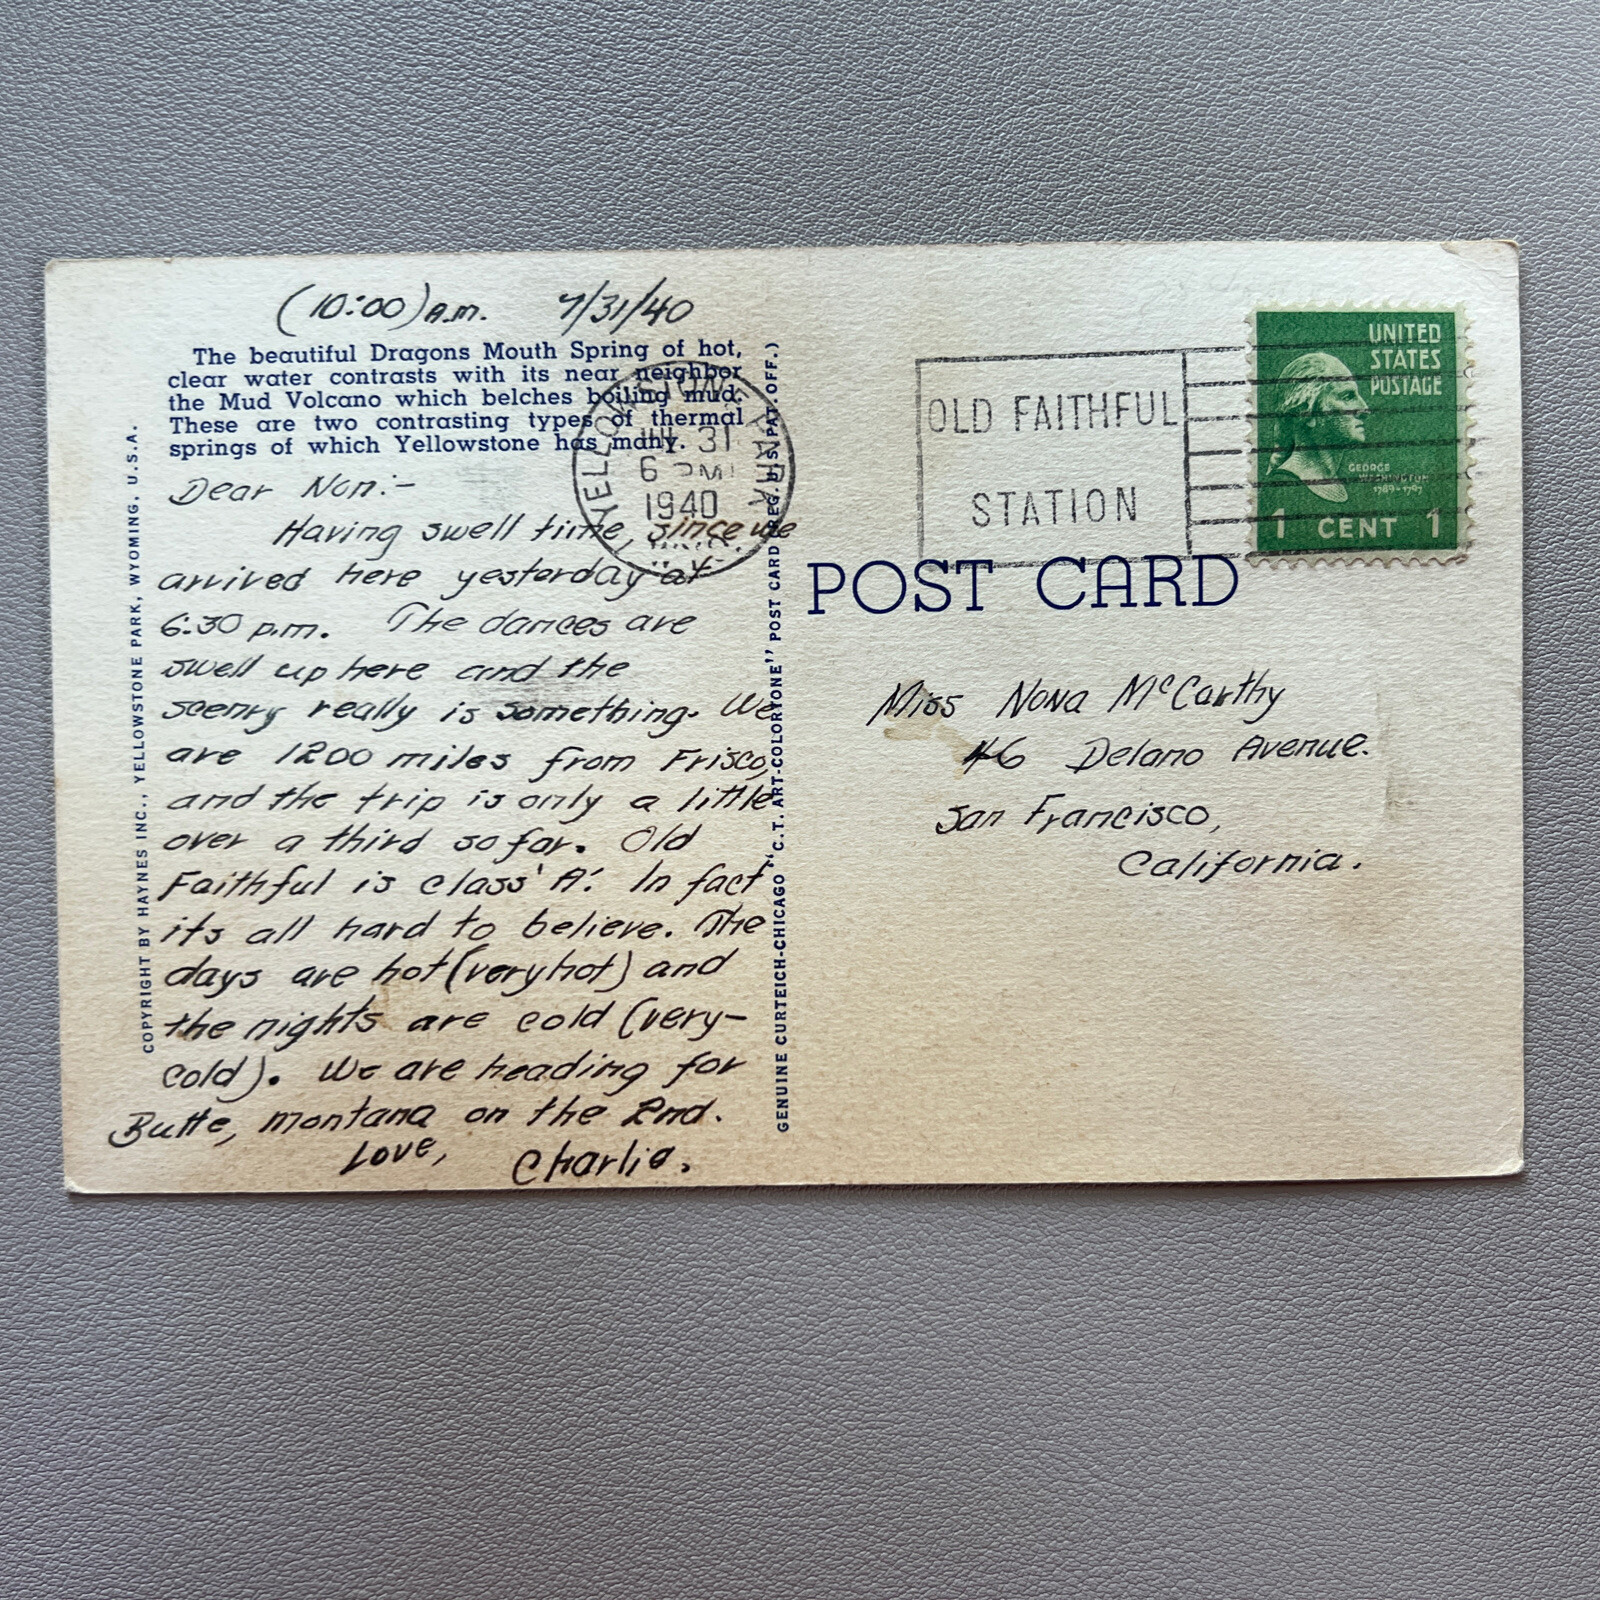 (10:00) A.m. 7/31/40
The beautiful Dragons Mouth Spring of hot,
clear water contrasts with its near neighbor
the Mud Volcano which belches boiling mud.
These are two contrasting types of thermal
springs of which Yellowstone has many.
Dear Non:-
Having swell time, since we
arrived here yesterday at
6:30 p.m. The dances are
swell up here and the
scenry really is something. We
are 1200 miles from Frisco,
and the trip is only a little
over a third so far. Old
Faithful is class 'A'. In fact
its all hard to believe. The
days are hot (very hot) and
the nights are cold (very-
cold). We are heading for
Butte, montana on the 2nd.
Love, Charlie.
COPYRIGHT BY HAYNES INC., YELLOWSTONE PARK, WYOMING, U.S.A.
GENUINE CURTEICH-CHICAGO "C.T. ART-COLORTONE" POST CARD (REG. U.S. PAT. OFF.)
YELLOWSTONE PARK
JUL 31
6 PM
1940
OLD FAITHFUL
STATION
UNITED
STATES
POSTAGE
GEORGE
WASHINGTON
1789-1797
1 CENT 1
POST CARD
Miss Nona McCarthy
46 Delano Avenue.
San Francisco,
California.